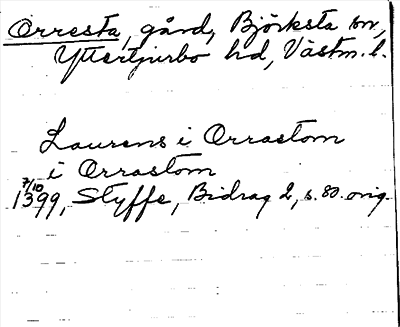 Orresta, gård, Björksta sn,
Yttertjurbo hd, Västm. l.
Laurens i Orrastom
i Orrastom
7/10
1399, Styffe, Bidrag 2, s. 80. orig.